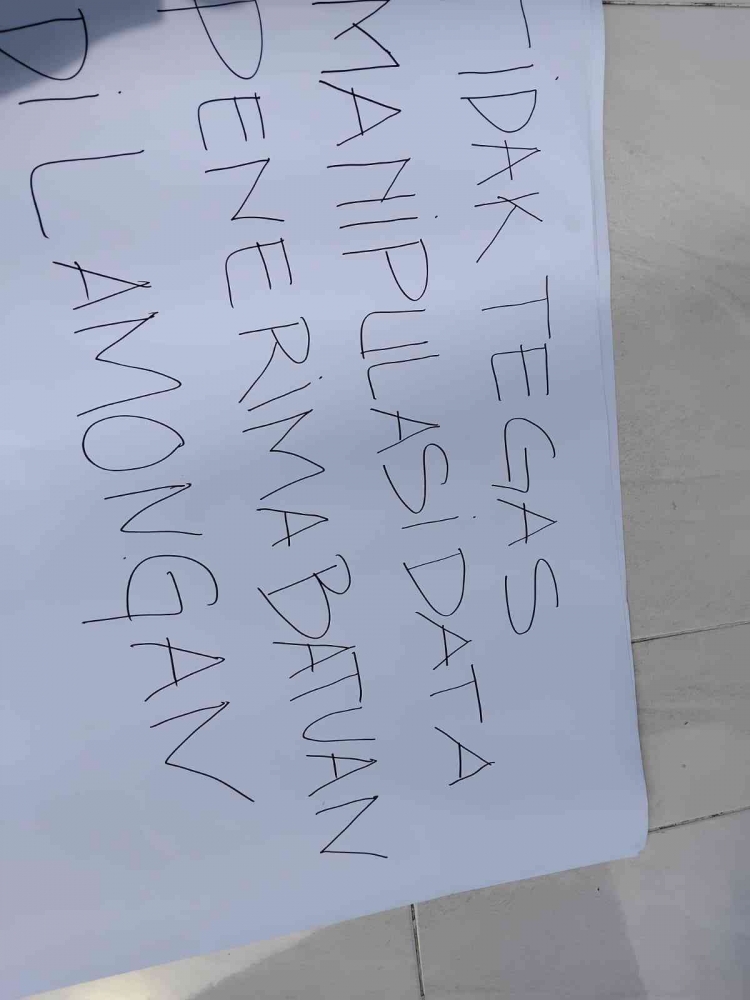 TIDAK TEGAS
MANIPULASI DATA
PENERIMA BATUAN
DI LAMONGAN